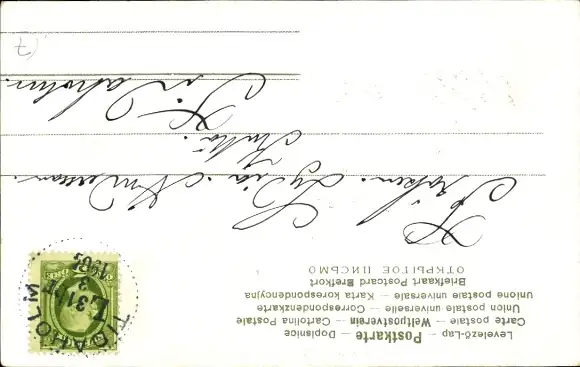 Levelező-Lap — Postkarte — Dopisnice
Carte postale — Weltpostverein — Cartolina Postale
Union postale universelle — Correspondenzkarte
Unione postale universale — Karta korespondencyjna
Briefkaart Postcard Bretkort
ОТКРЫТОЕ ПИСЬМО
TIDAHOLM
31
1903
Fröken Lydia Andersson
Tidaholm
(7